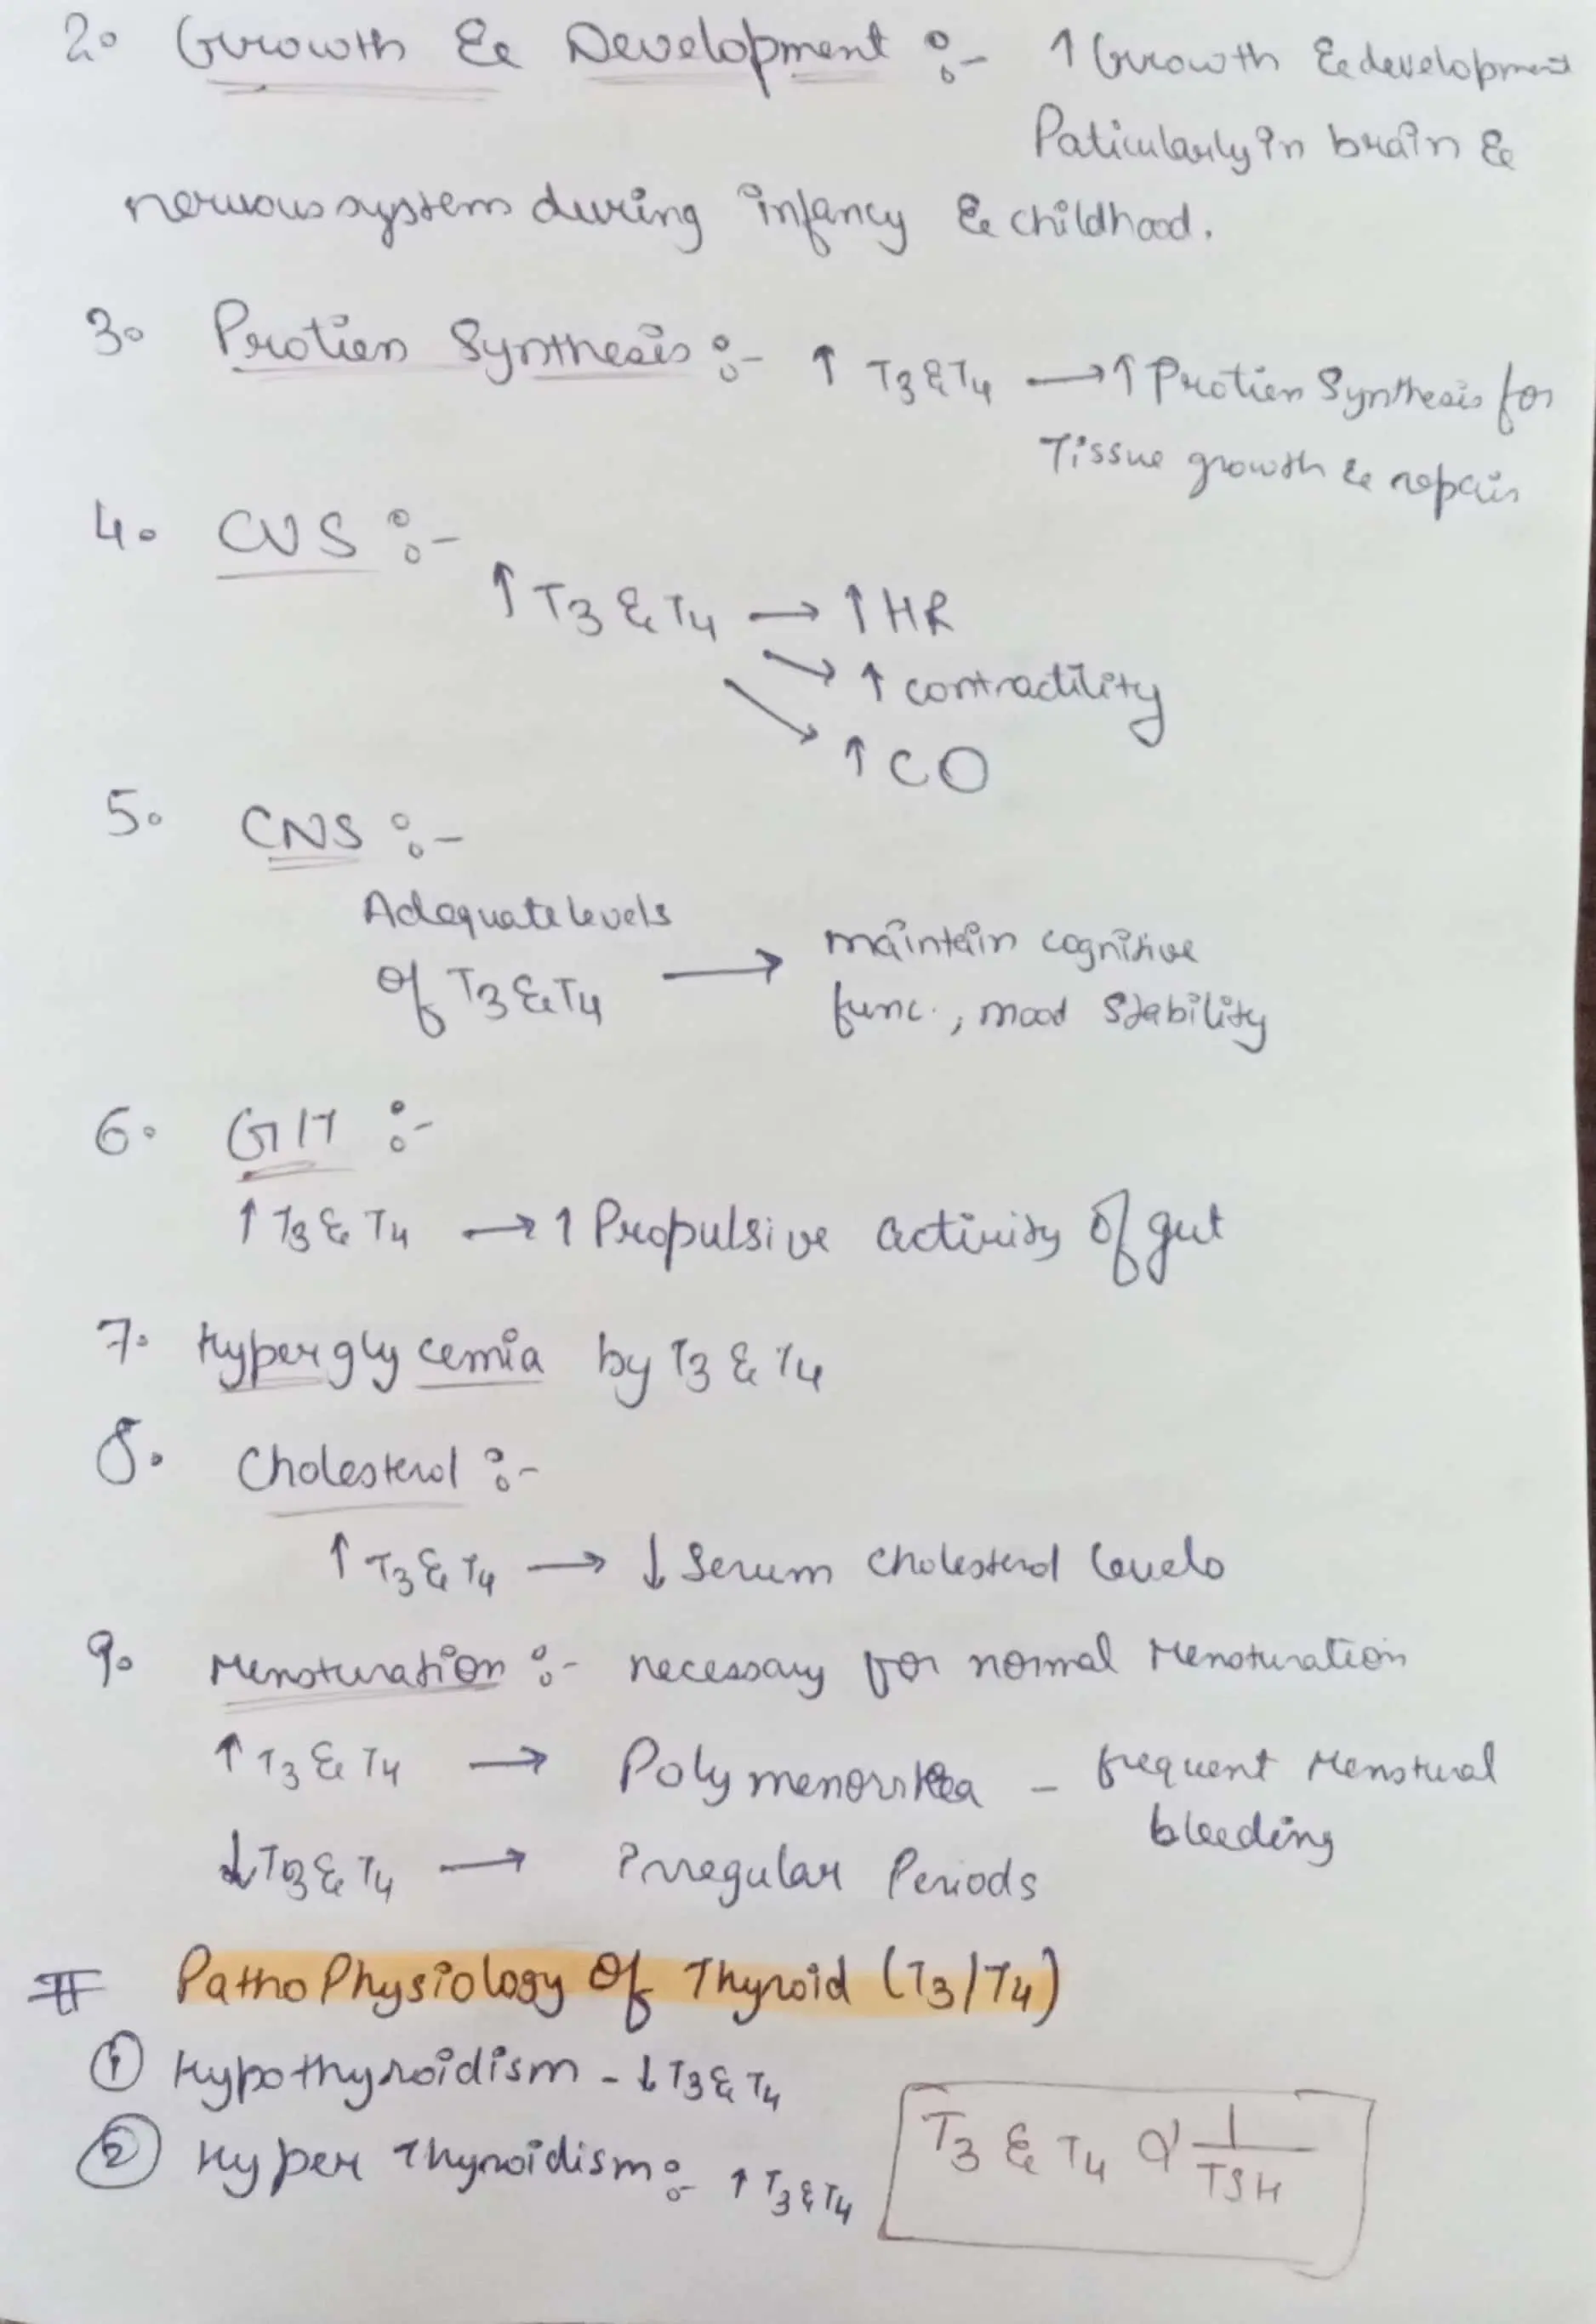 2. Growth & Development :- ↑ Growth & development
Paticularly in brain &
nervous system during infancy & childhood.
3. Protien Synthesis :- ↑ T3 & T4 → ↑ Protien Synthesis for
Tissue growth & repair
4. CVS :-
↑ T3 & T4 → ↑ HR
↘ ↑ contractility
↘ ↑ CO
5. CNS :-
Adequate levels
of T3 & T4 → maintain cognitive
func., mood stability
6. GIT :-
↑ T3 & T4 → ↑ Propulsive activity of gut
7. Hyperglycemia by T3 & T4
8. Cholesterol :-
↑ T3 & T4 → ↓ Serum cholesterol levels
9. Mensturation :- necessary for normal Mensturation
↑ T3 & T4 → Polymenorrhea - frequent Menstural
bleeding
↓ T3 & T4 → irregular Periods
# PathoPhysiology of Thyroid (T3/T4)
① Hypothyroidism - ↓ T3 & T4
② Hyper Thyroidism :- ↑ T3 & T4
T3 & T4 ∝ 1/TSH